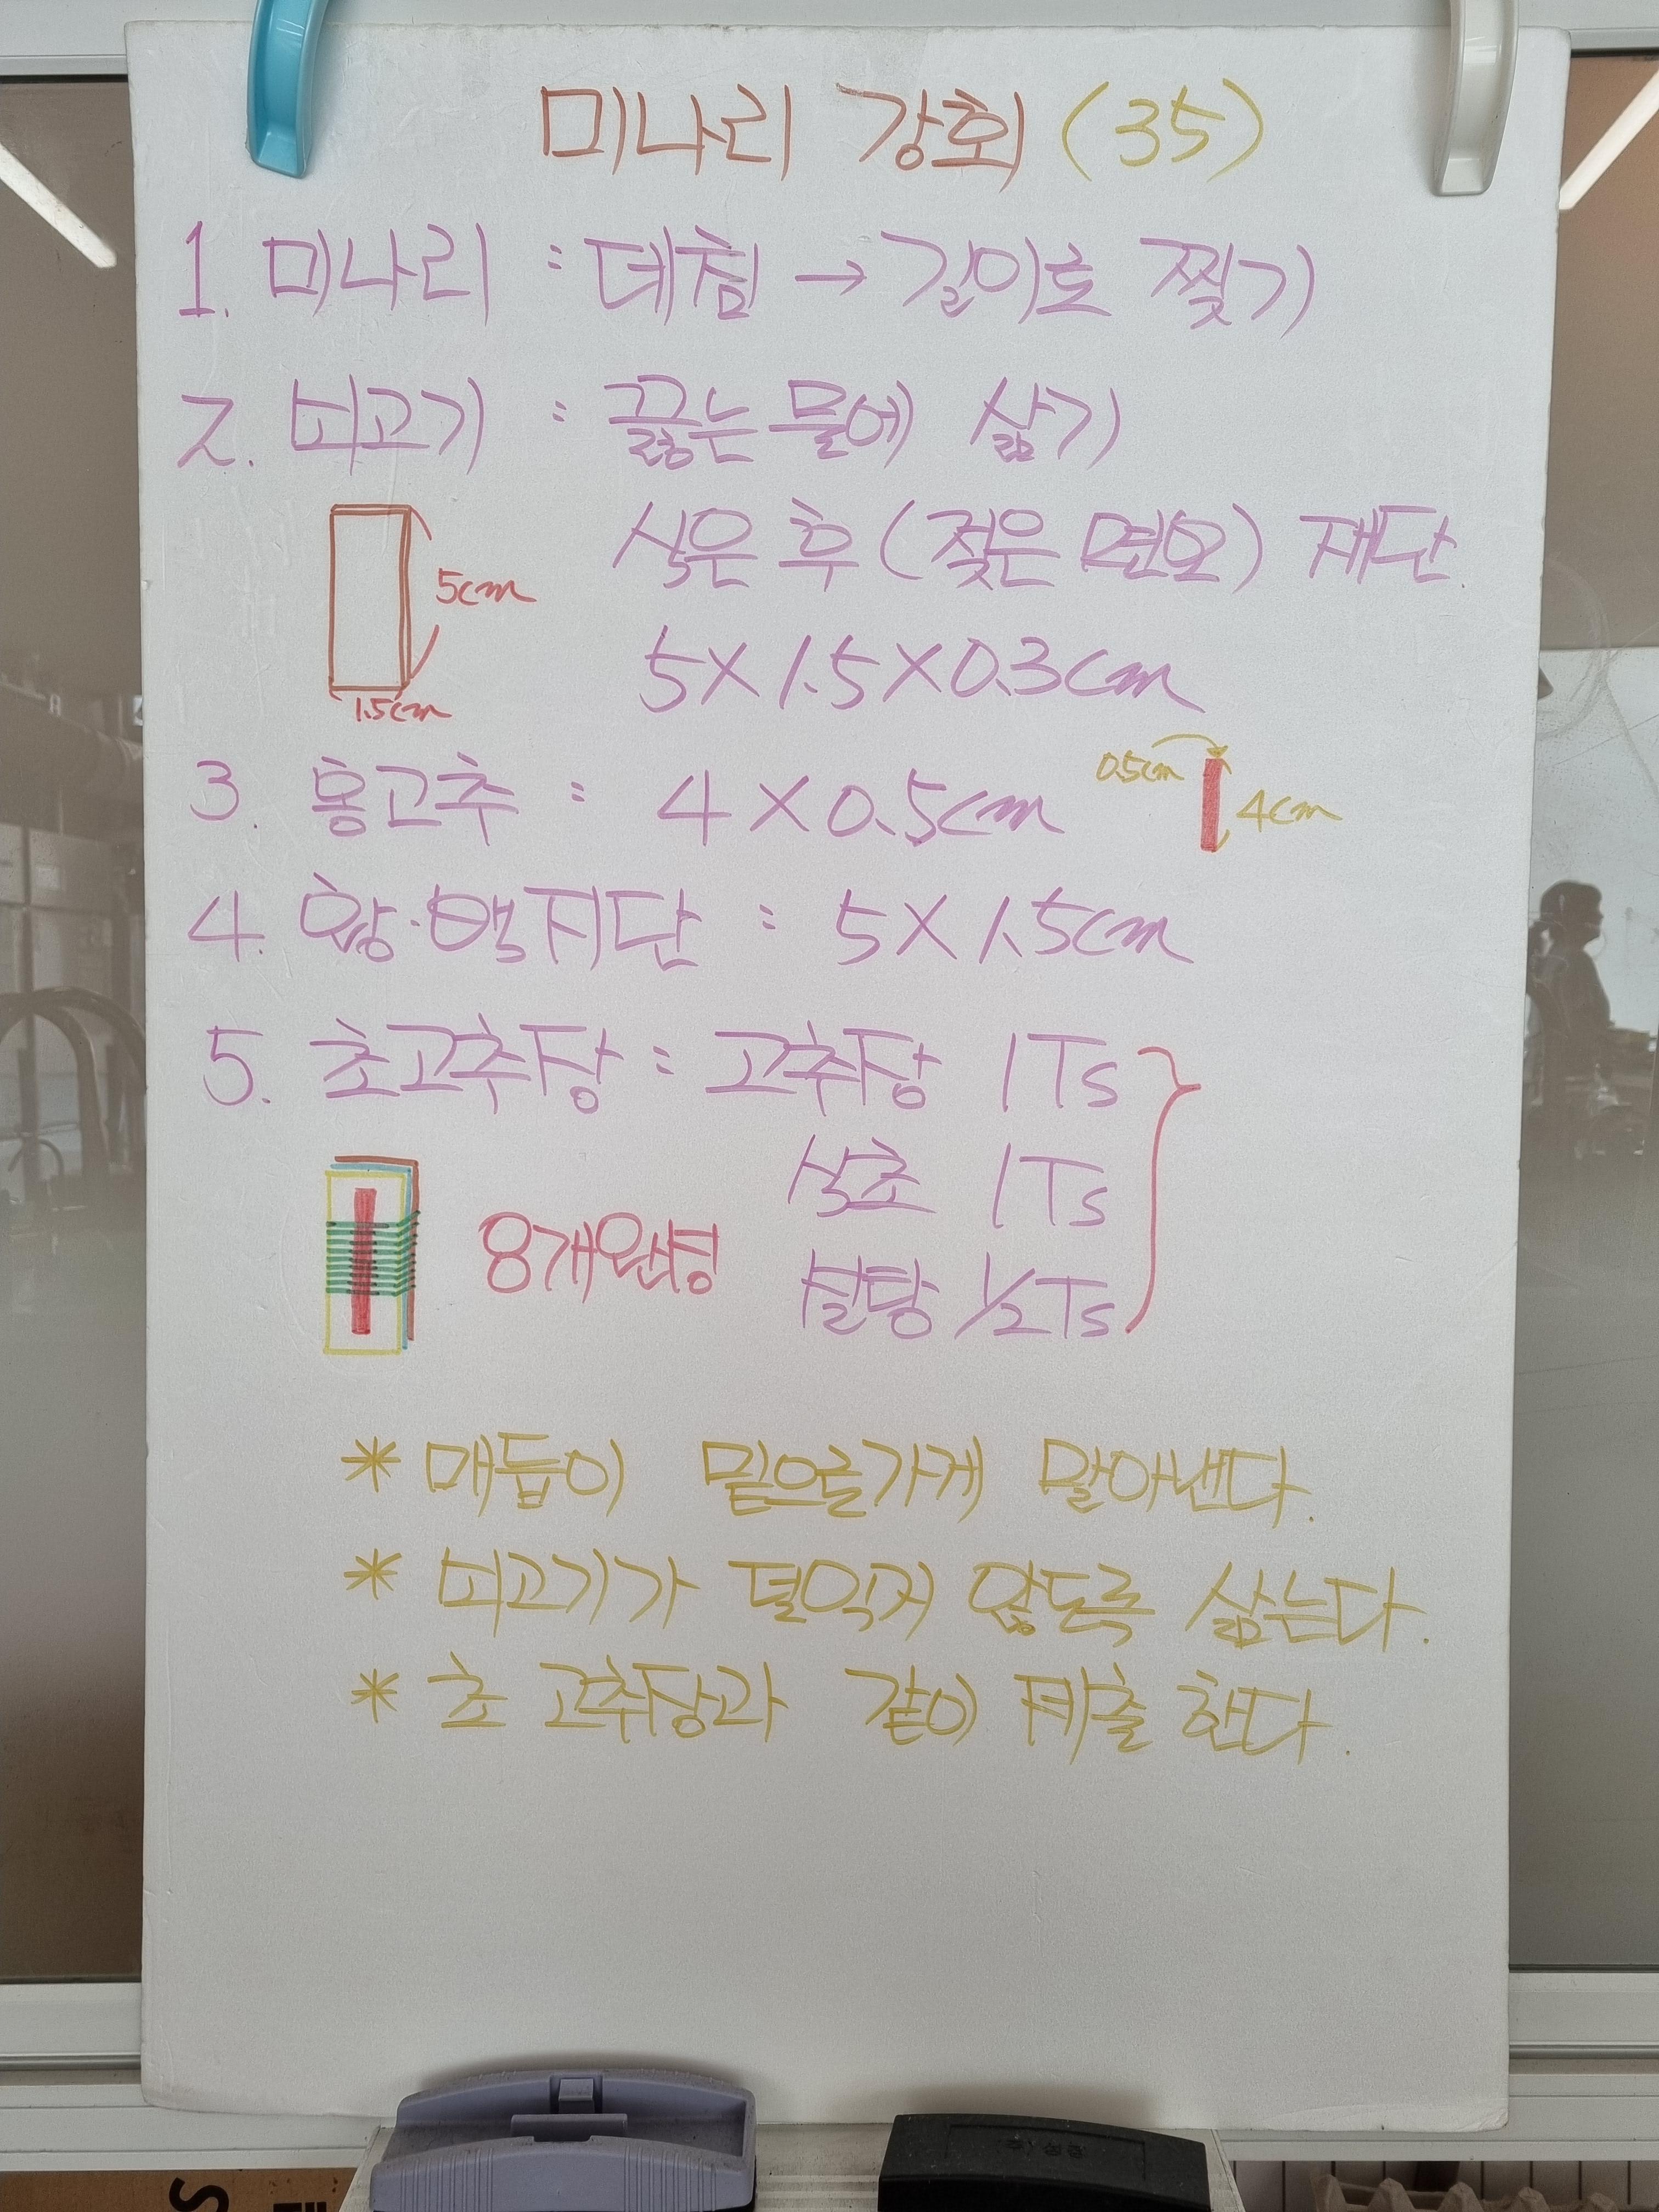 미나리 강회 (35)
1. 미나리 : 데침 → 길이로 찢기
2. 쇠고기 : 끓는 물에 삶기
식은 후 (젖은 면보) 재단
5cm
1.5cm
5X1.5X0.3cm
3. 홍고추 : 4X0.5cm
0.5cm
4cm
4. 황·백지단 : 5X1.5cm
5. 초고추장 : 고추장 1Ts
식초 1Ts
8개완성
설탕 1/2Ts
* 매듭이 밑으로가게 말아낸다.
* 쇠고기가 덜익지 않도록 삶는다.
* 초 고추장과 같이 제출 한다.
S